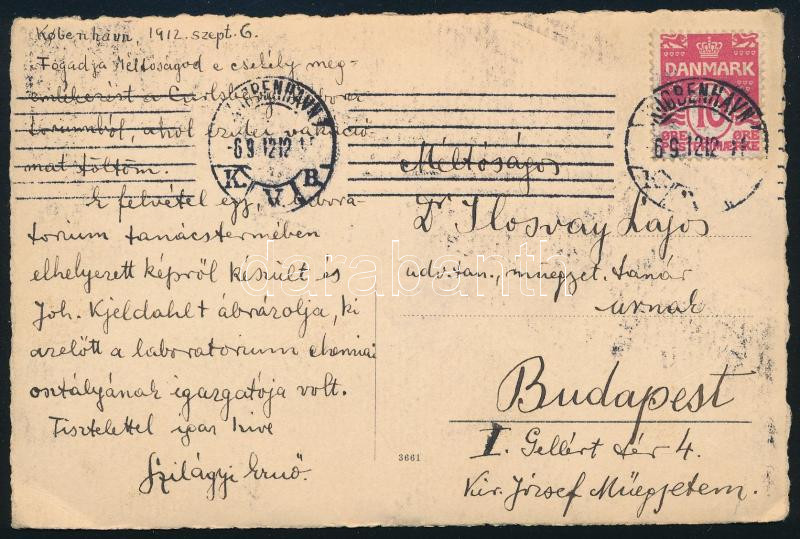 København, 1912. szept. 6.
Fogadja Méltóságod e csekély meg-
emlékezést a Carlsberg labora-
toriumból, ahol ezidei vakáció
mat töltöm.
E felvétel egy, a labora-
torium tanácstermében
elhelyezett képről készült és
Joh. Kjeldahlt ábrázolja, ki
azelőtt a laboratorium chemiai
osztályának igazgatója volt.
Tisztelettel igaz híve
Szilágyi Ernő.
DANMARK
10
ØRE ØRE
POSTFRIMÆRKE
KJØBENHAVN
6 9.12 12
K. VIB
KJØBENHAVN
6 9.12 12
Méltóságos
Dr Ilosvay Lajos
udv. tan., műegyet. tanár
úrnak
Budapest
I. Gellért tér 4.
Kir. József Műegyetem.
3661
darabanth